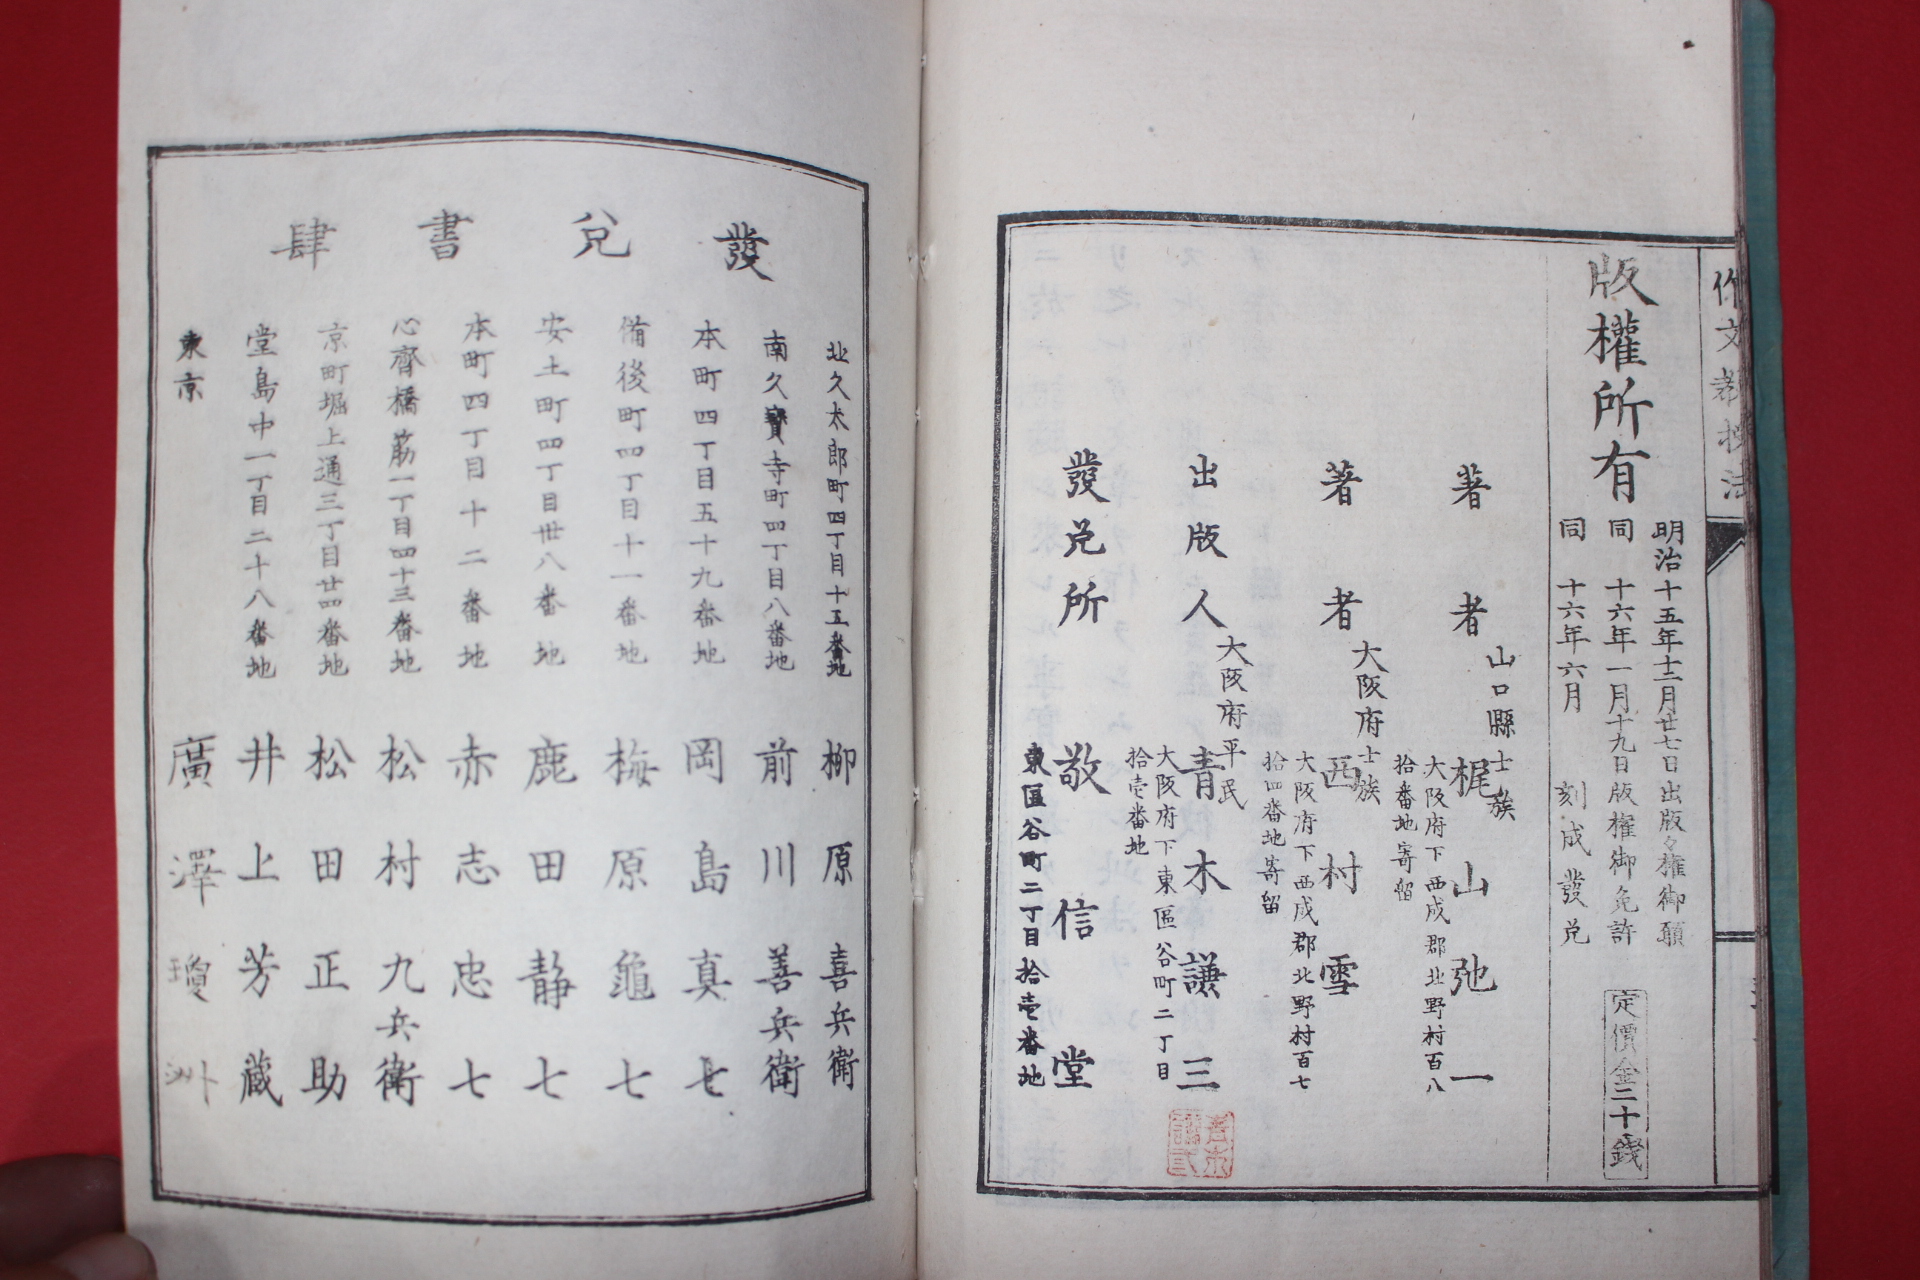 作文教授法
版權所有
明治十五年十二月廿七日出版々權御願
同 十六年一月十九日版權御免許
同 十六年六月 刻成發兌
定價金二十錢
著者 山口縣士族 梶山弛一
大阪府下西成郡北野村百八
拾番地寄留
著者 大阪府士族 西村雪
大阪府下西成郡北野村百七
拾四番地寄留
出版人 大阪府平民 青木謙三
大阪府下東區谷町二丁目
拾壱番地
發兌所 敬信堂
東區谷町二丁目拾壱番地
發兌書肆
北久太郎町四丁目十五番地 柳原喜兵衛
南久寳寺町四丁目八番地 前川善兵衛
本町四丁目五十九番地 岡島真七
備後町四丁目十一番地 梅原龜七
安土町四丁目丗八番地 鹿田静七
本町四丁目十二番地 赤志忠七
心齋橋筋一丁目四十三番地 松村九兵衛
京町堀上通三丁目廿四番地 松田正助
堂島中一丁目二十八番地 井上芳蔵
東京 廣澤瓊州